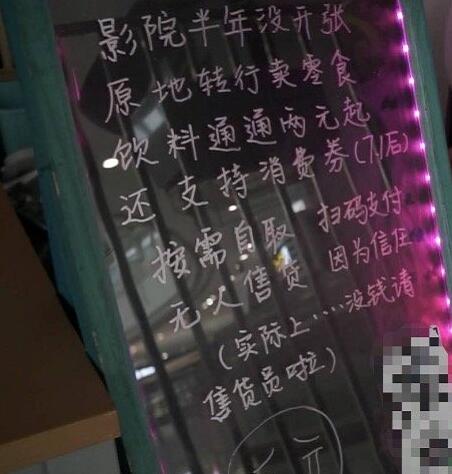 影院半年没开张
原地转行卖零食
饮料通通两元起
还支持消费券(7.1后)
按需自取 扫码支付
无人售货 因为信任
(实际上....没钱请
售货员啦)